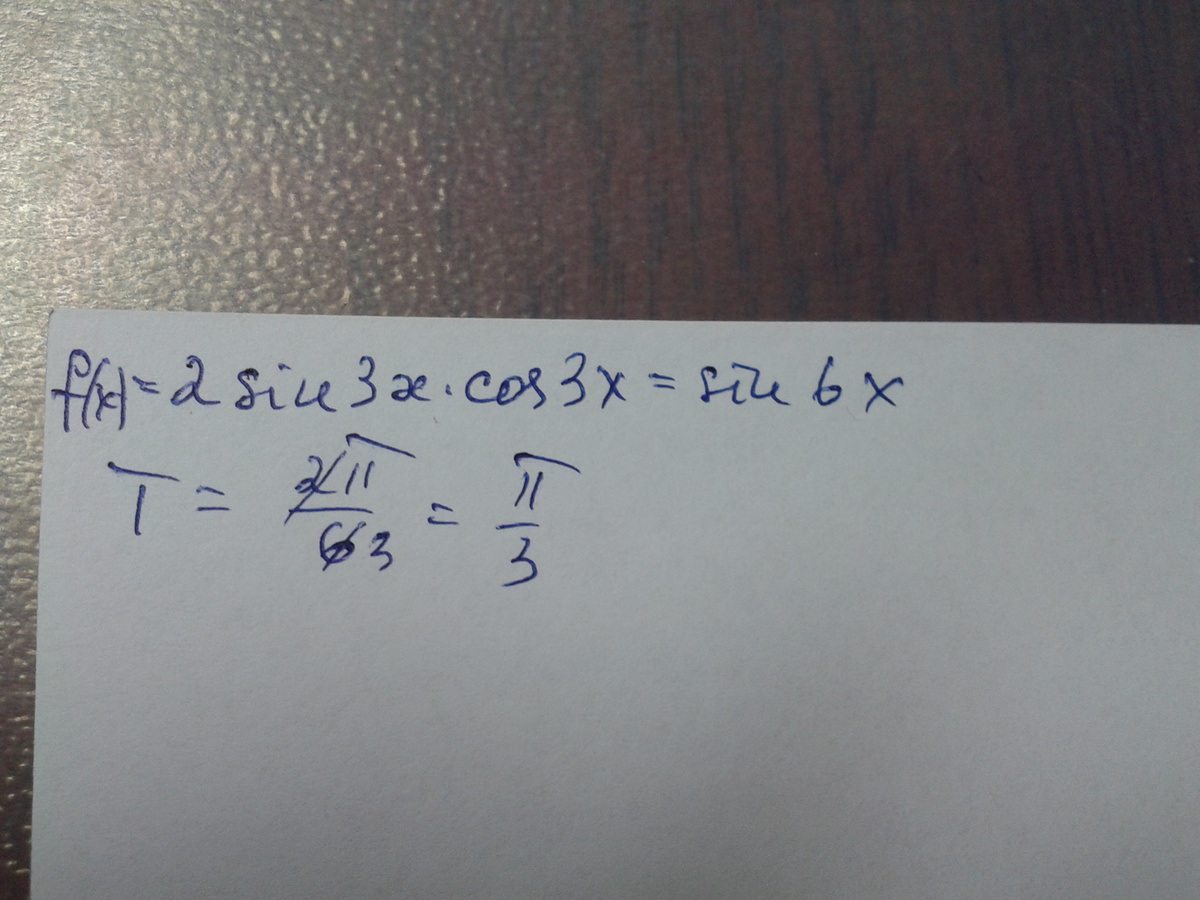 f(x)=2 sin 3x · cos 3x = sin 6x
T = 2π/6 3 = π/3